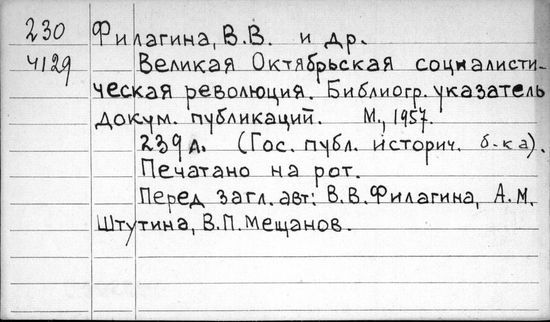 230 Филагина, В.В. и др.
4129 Великая Октябрьская социалисти-
ческая революция. Библиогр. указатель
докум. публикаций. М., 1957.
239 л. (Гос. публ. историч. б-ка).
Печатано на рот.
Перед загл. авт: В.В. Филагина, А.М.
Штутина, В.П. Мещанов.